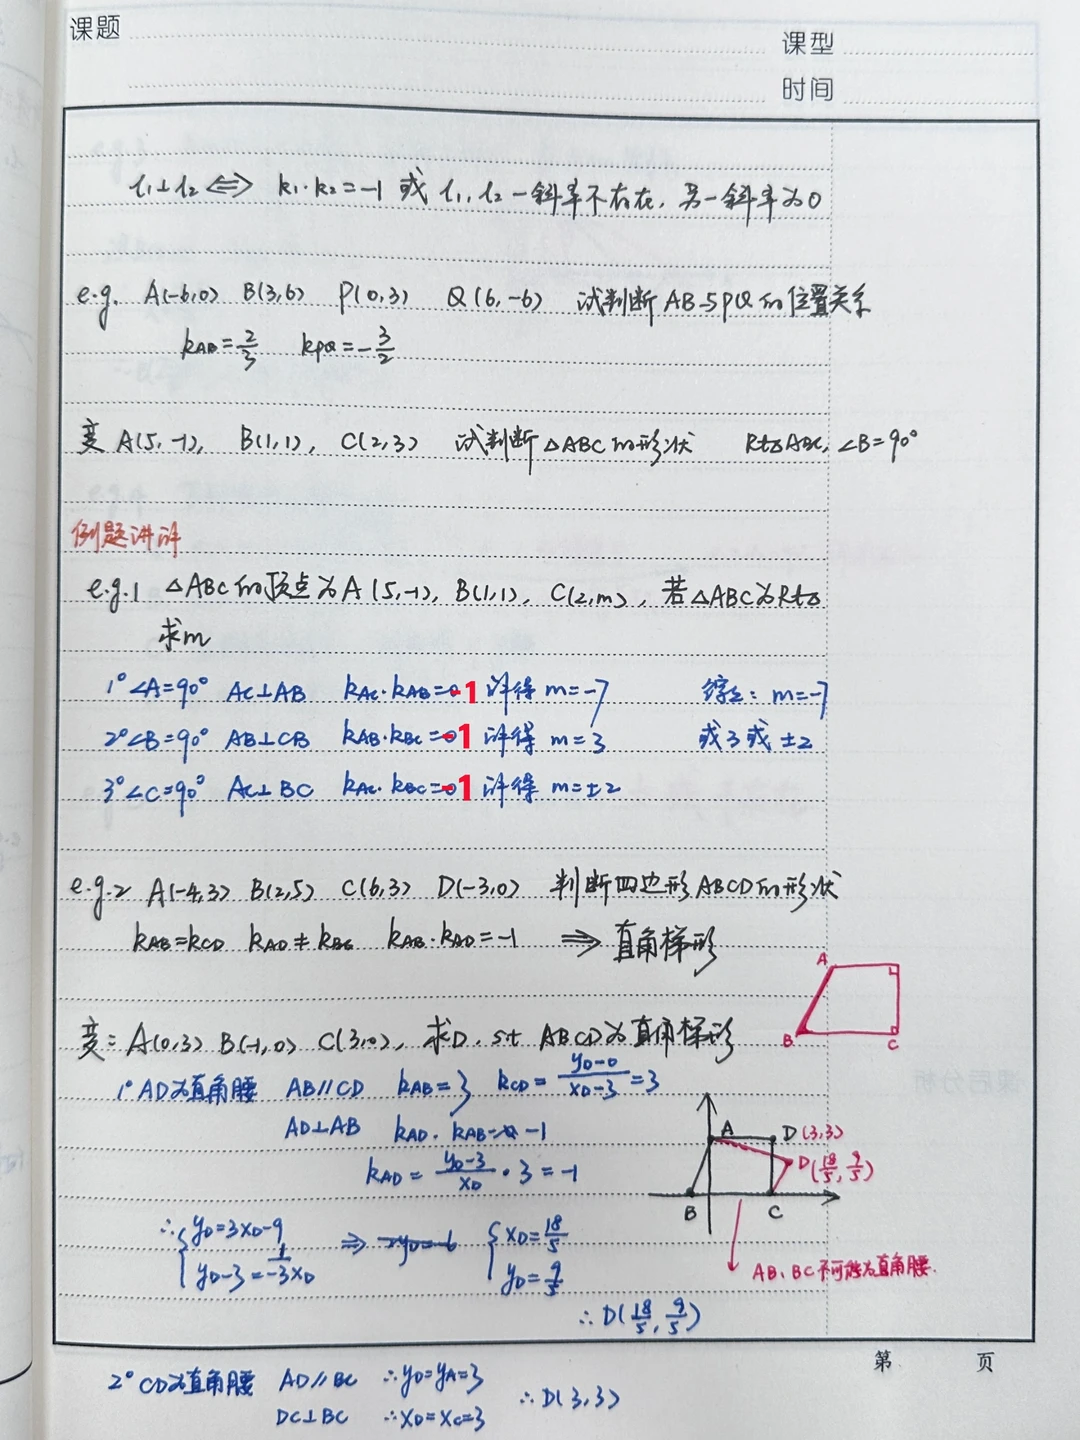 课题
课型
时间
l₁⊥l₂ ⟺ k₁·k₂=-1 或 l₁,l₂一斜率不存在,另一斜率为0
e.g. A(-6,0) B(3,6) P(0,3) Q(6,-6) 试判断AB与PQ的位置关系
k_AB=2/3 k_PQ=-3/2
变 A(5,-1), B(1,1), C(2,3) 试判断△ABC的形状 Rt△ABC, ∠B=90°
例题讲评
e.g.1 △ABC的顶点为A(5,-1), B(1,1), C(2,m), 若△ABC为Rt△
求m
1° ∠A=90° AC⊥AB k_AC·k_AB=-1 评得 m=-7 综上: m=-7
2° ∠B=90° AB⊥CB k_AB·k_BC=-1 评得 m=3 或3或±2
3° ∠C=90° AC⊥BC k_AC·k_BC=-1 评得 m=±2
e.g.2 A(-4,3) B(2,5) C(6,3) D(-3,0) 判断四边形ABCD的形状
k_AB=k_CD k_AD≠k_BC k_AB·k_AD=-1 ⟹ 直角梯形
A
B C
变: A(0,3) B(-1,0) C(3,0), 求D, s.t ABCD为直角梯形
1° AD为直角腰 AB//CD k_AB=3 k_CD=(y_D-0)/(x_D-3)=3
AD⊥AB k_AD·k_AB=-1
k_AD=(y_D-3)/x_D·3=-1
A D(3,3)
D(18/5, 9/5)
B C
∴{y_D=3x_D-9 ⟹ {x_D=18/5
y_D-3=-1/3x_D y_D=9/5
AB、BC不可能为直角腰.
∴D(18/5, 9/5)
第 页
2° CD为直角腰 AD//BC ∴y_D=y_A=3 ∴D(3,3)
DC⊥BC ∴x_D=x_C=3